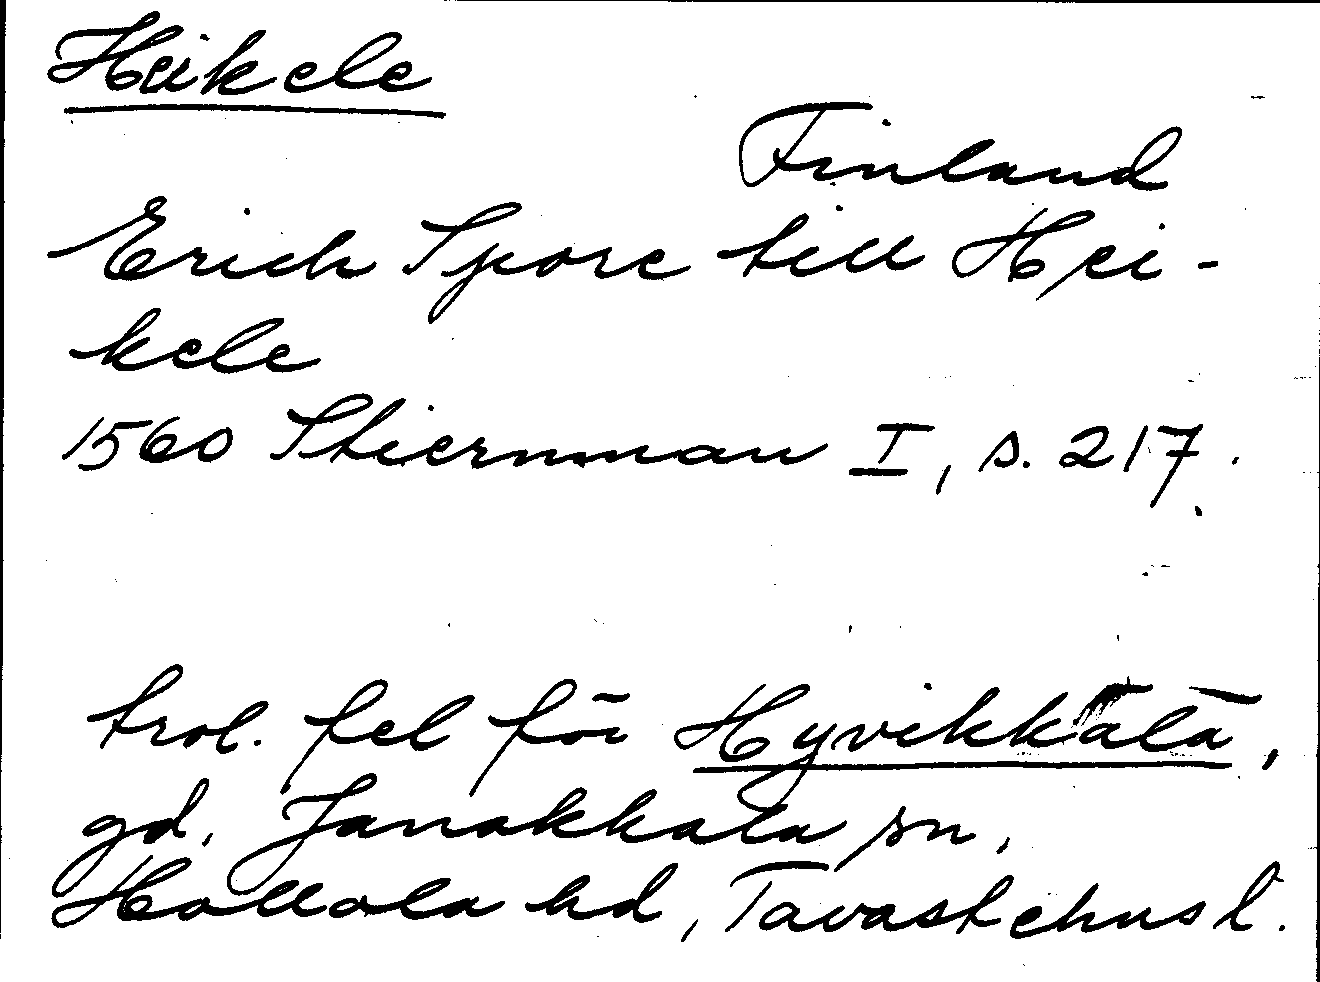 Heikele
Finland
Erich Spore till Hei-
kele
1560 Stiernman I, s. 217.
trol. fel för Hyvikkälä,
gd. Janakkala sn,
Hollola hd, Tavastehus l.